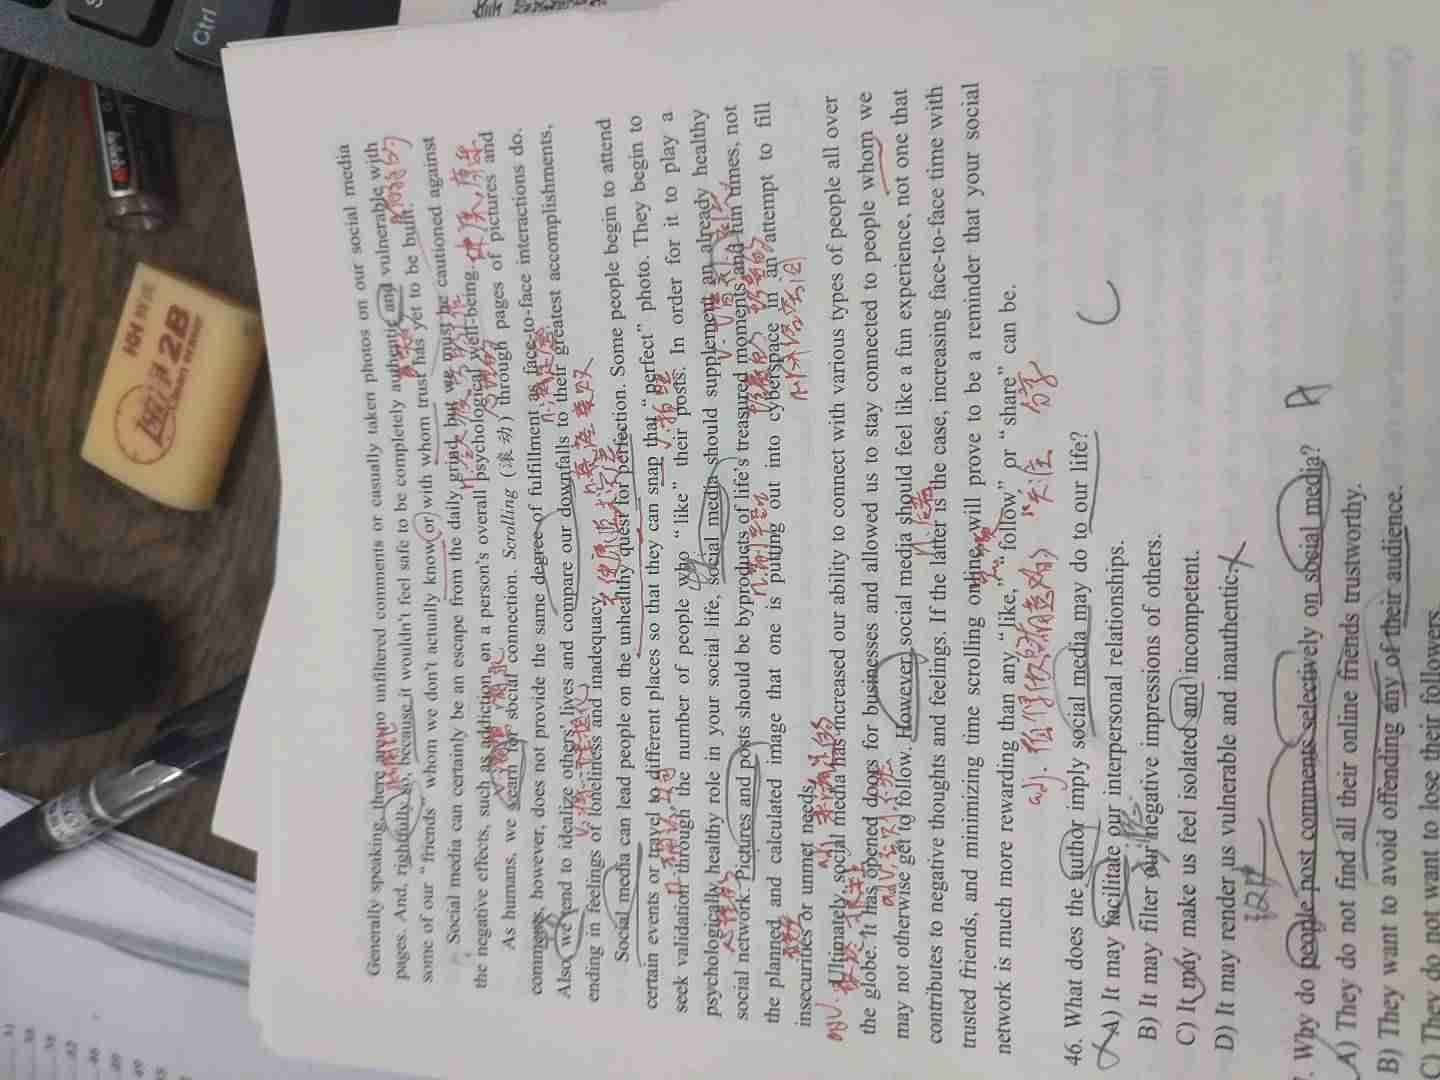 Ctrl
2B
Generally speaking, there are no unfiltered comments or casually taken photos on our social media
pages. And, rightfully so, because it wouldn't feel safe to be completely authentic and vulnerable with
some of our "friends" whom we don't actually know or with whom trust has yet to be built.
Social media can certainly be an escape from the daily grind, but we must be cautioned against
the negative effects, such as addiction, on a person's overall psychological well-being.
As humans, we yearn for social connection. Scrolling (滚动) through pages of pictures and
comments, however, does not provide the same degree of fulfillment as face-to-face interactions do.
Also, we tend to idealize others' lives and compare our downfalls to their greatest accomplishments,
ending in feelings of loneliness and inadequacy.
Social media can lead people on the unhealthy quest for perfection. Some people begin to attend
certain events or travel to different places so that they can snap that "perfect" photo. They begin to
seek validation through the number of people who "like" their posts. In order for it to play a
psychologically healthy role in your social life, social media should supplement an already healthy
social network. Pictures and posts should be byproducts of life's treasured moments and fun times, not
the planned and calculated image that one is putting out into cyberspace in an attempt to fill
insecurities or unmet needs.
Ultimately, social media has increased our ability to connect with various types of people all over
the globe. It has opened doors for businesses and allowed us to stay connected to people whom we
may not otherwise get to follow. However, social media should feel like a fun experience, not one that
contributes to negative thoughts and feelings. If the latter is the case, increasing face-to-face time with
trusted friends, and minimizing time scrolling online, will prove to be a reminder that your social
network is much more rewarding than any "like," "follow" or "share" can be.
adj. 值得做的有意义的 "关注 分享
46. What does the author imply social media may do to our life? C
A) It may facilitate our interpersonal relationships.
B) It may filter our negative impressions of others.
C) It may make us feel isolated and incompetent.
D) It may render us vulnerable and inauthentic.
7. Why do people post comments selectively on social media? A
A) They do not find all their online friends trustworthy.
B) They want to avoid offending any of their audience.
C) They do not want to lose their followers